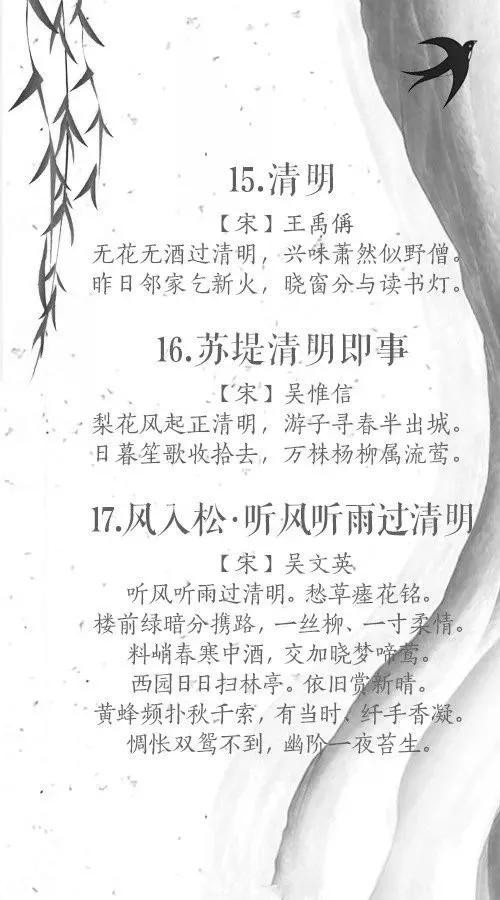 15.清明
【宋】王禹偁
无花无酒过清明，兴味萧然似野僧。
昨日邻家乞新火，晓窗分与读书灯。
16.苏堤清明即事
【宋】吴惟信
梨花风起正清明，游子寻春半出城。
日暮笙歌收拾去，万株杨柳属流莺。
17.风入松·听风听雨过清明
【宋】吴文英
听风听雨过清明。愁草瘗花铭。
楼前绿暗分携路，一丝柳、一寸柔情。
料峭春寒中酒，交加晓梦啼莺。
西园日日扫林亭。依旧赏新晴。
黄蜂频扑秋千索，有当时、纤手香凝。
惆怅双鸳不到，幽阶一夜苔生。